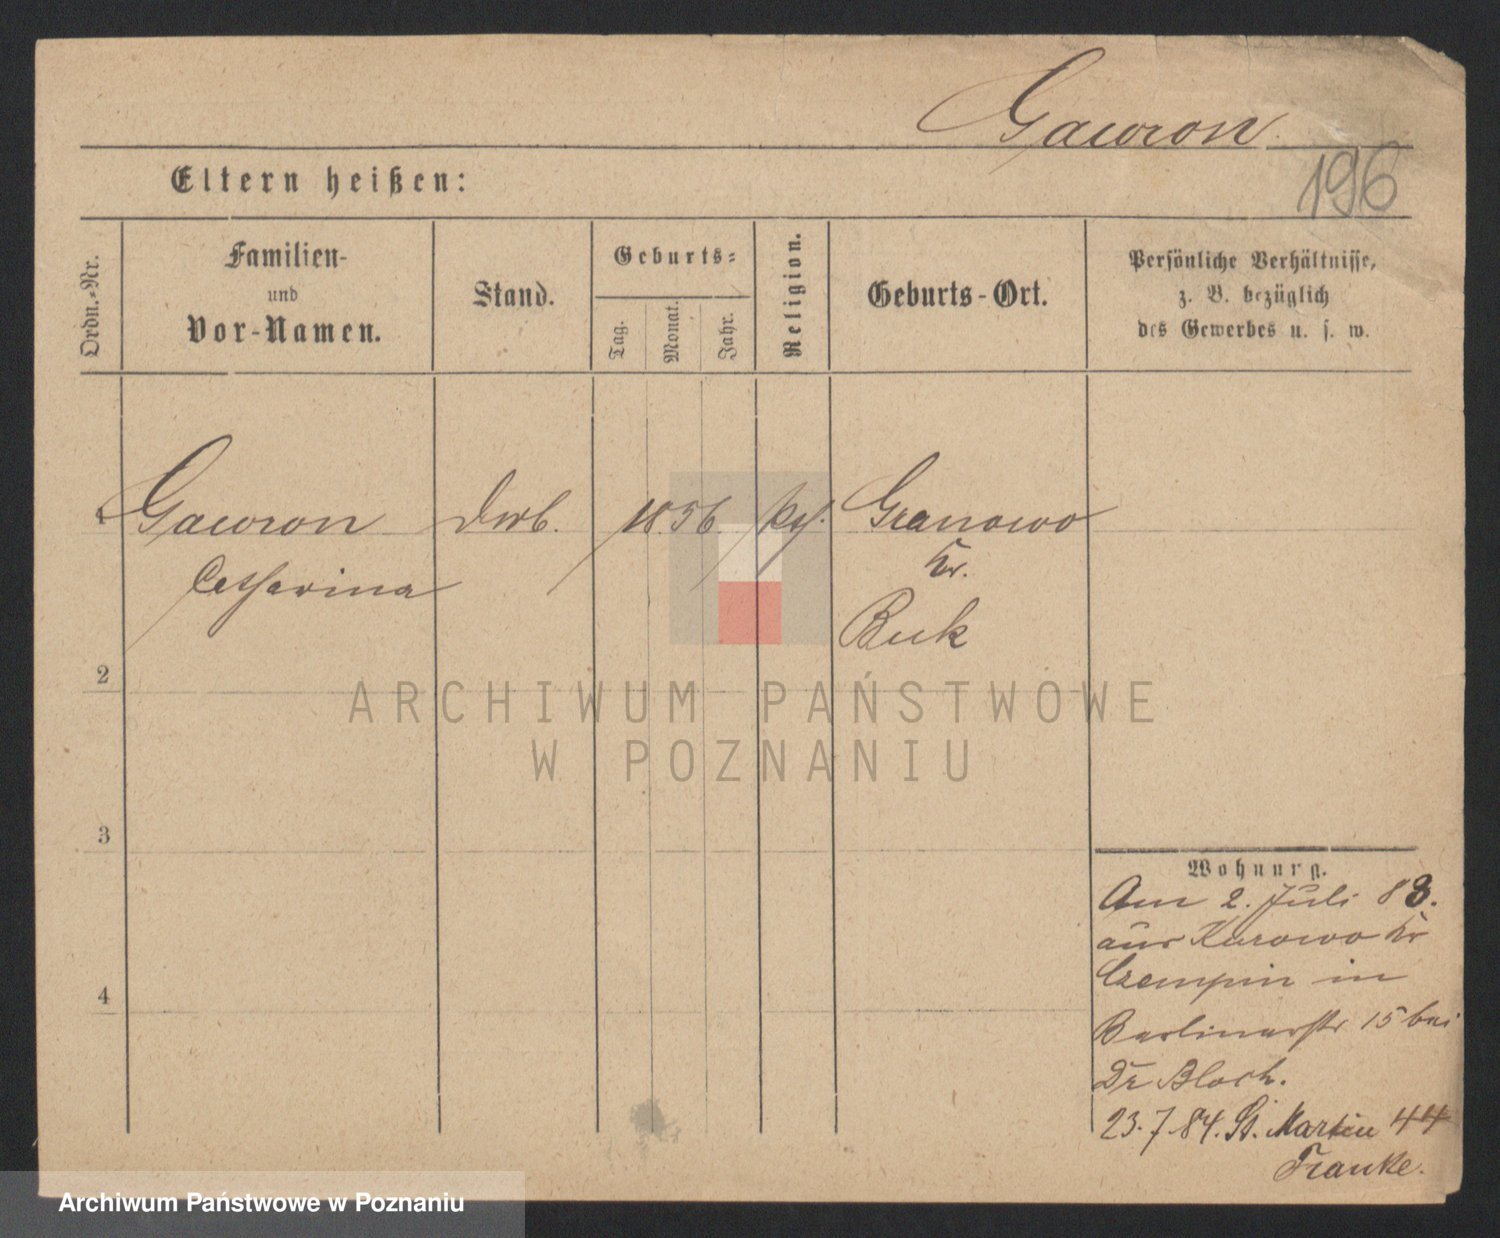 Gawron
196
Eltern heißen:
Ordn.-Nr.
Familien-
und
Vor-Namen.
Stand.
Geburts-
Tag.
Monat.
Jahr.
Religion.
Geburts-Ort.
Persönliche Verhältnisse,
z. B. bezüglich
des Gewerbes u. s. w.
1 Gawron 1856 Granowo
Catharina Kr.
Buk
2
ARCHIWUM PAŃSTWOWE
W POZNANIU
3
Wohnung.
Am 2. Juli 83.
aus Kurowo Kr
Czempin in
Berlinerstr 15 bei
Dr Bloch.
4
23.7.84. St. Martin 44
Franke.
Archiwum Państwowe w Poznaniu